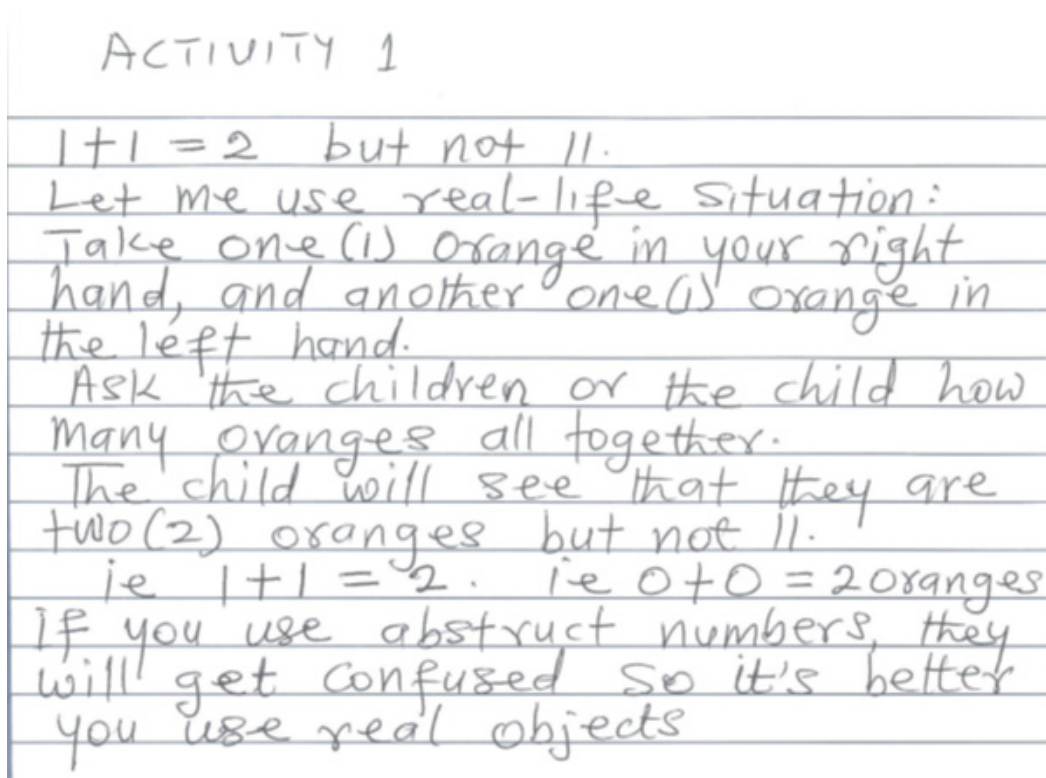 ACTIVITY 1
1+1 = 2 but not 11.
Let me use real-life situation:
Take one (1) orange in your right
hand, and another one (1) orange in
the left hand.
Ask the children or the child how
many oranges all together.
The child will see that they are
two (2) oranges but not 11.
ie 1+1 = 2. ie 0+0 = 2 oranges
if you use abstruct numbers, they
will get confused so it's better
you use real objects